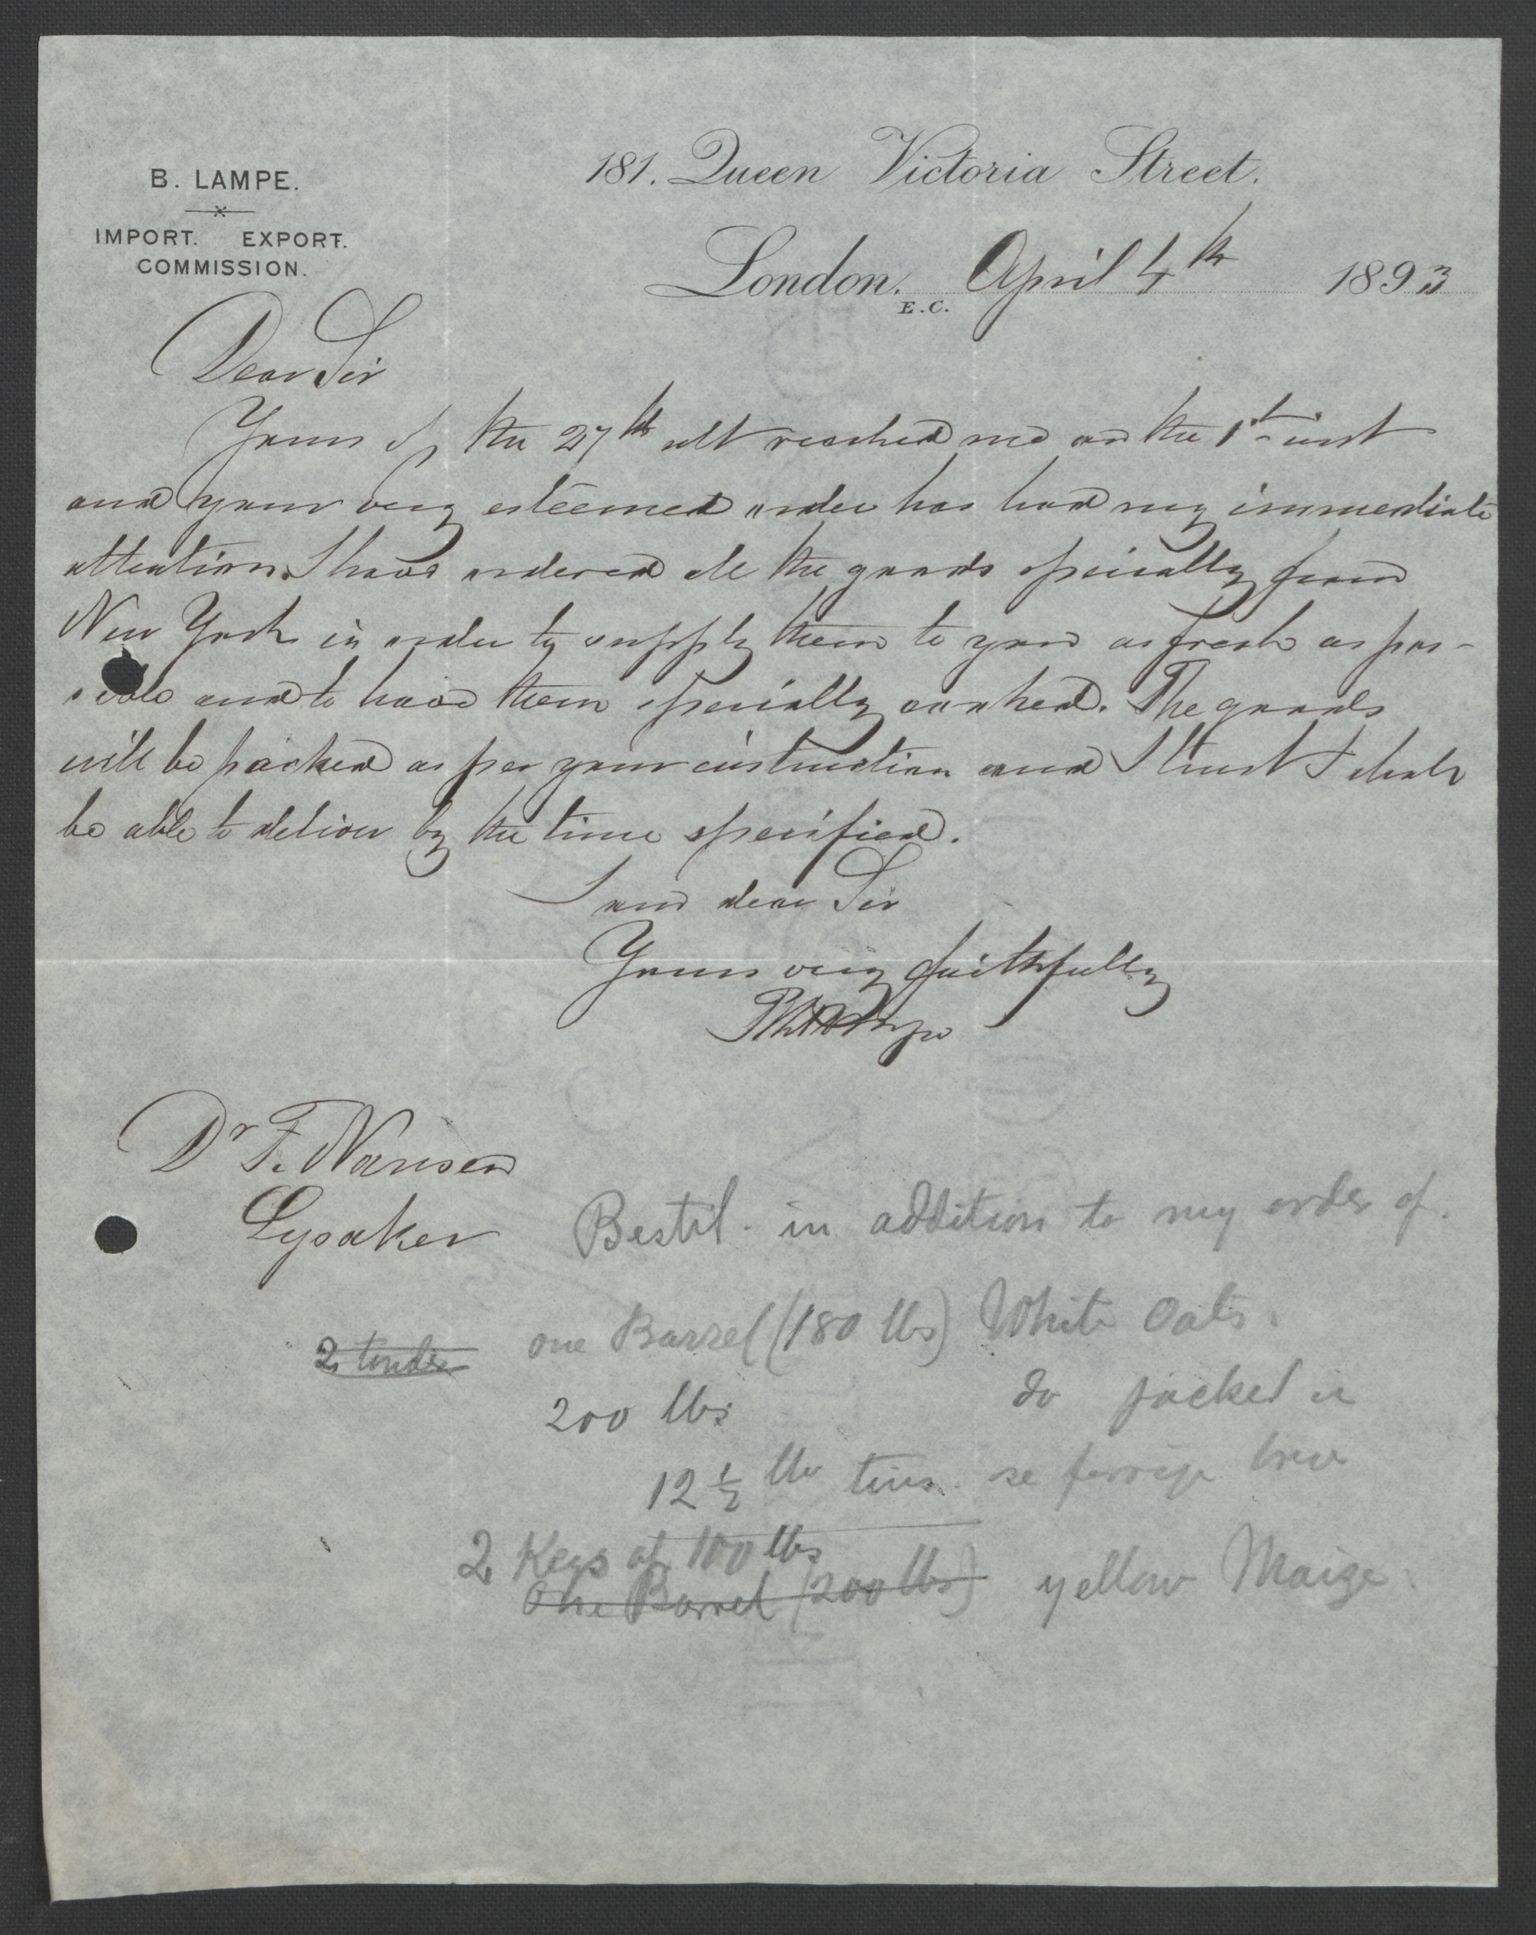 B. LAMPE.
IMPORT. EXPORT.
COMMISSION.
181. Queen Victoria Street.
London. E.C. April 4th 1893
Dear Sir
Yours of the 27th ult reached me on the 1st inst
and your very esteemed order has had my immediate
attention. I have ordered all the goods specially from
New York in order to supply them to you as fresh as pos-
sible and to have them specially cooked. The goods
will be packed as per your instruction and I trust I shall
be able to deliver by the time specified.
I am dear Sir
Yours very faithfully
Dr F. Nansen
Lysaker
Bestil. in addition to my order of.
2 tønder one Barrel (180 lbs) White Oats.
200 lbs do packed in
12 1/2 lbs tins. se forrige brev
2 Kegs of 100 lbs
One Barrel (200 lbs) yellow Maize.